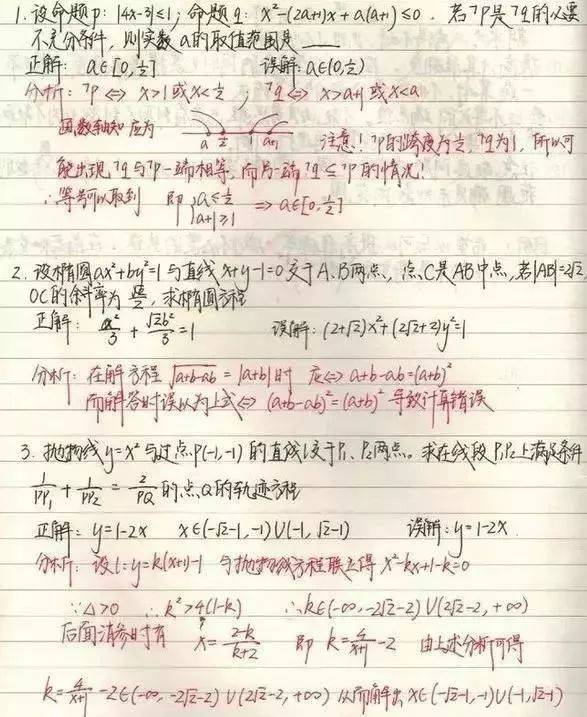 1. 设命题p: |4x-3|≤1; 命题q: x²-(2a+1)x+a(a+1)≤0. 若¬p是¬q的必要
不充分条件, 则实数a的取值范围是____
正解: a∈[0,½] 误解: a∈(0,½)
分析: ¬p ⇔ x>1或x<½ ; ¬q ⇔ x>a+1或x<a
因数轴知应为 a ½ 1 a+1 注意! ¬p的跨度为½, ¬q为1, 所以可
能出现¬q与¬p一端相等, 而另一端¬q≤¬p的情况!
∴等号可以取到 即 {a≤½ a+1≥1 ⇒ a∈[0,½]
2. 设椭圆ax²+by²=1与直线x+y-1=0交于A.B两点, 点C是AB中点, 若|AB|=2√2,
OC的斜率为√2/2, 求椭圆方程
正解: x²/3 + √2b²/3 = 1 误解: (2+√2)x²+(2√2+2)y²=1
分析: 在解方程 √a+b-ab = |a+b| 时 应⇔ a+b-ab=(a+b)²
而解答时误以为上式⇔ (a+b-ab)²=(a+b)² 导致计算错误
3. 抛物线y=x²与过点P(-1,-1)的直线l交于P₁、P₂两点。求在线段P₁P₂上满足条件
1/PP₁ + 1/PP₂ = 2/PQ 的点Q的轨迹方程
正解: y=1-2x x∈(-√2-1,-1)∪(-1,√2-1) 误解: y=1-2x
分析: 设l: y=k(x+1)-1 与抛物线方程联立得 x²-kx+1-k=0
∵Δ>0 ∴k²>4(1-k) ∴k∈(-∞,-2√2-2)∪(2√2-2,+∞)
后面消参时有 x=2-k/k+2 即 k=4/x+1-2 由上述分析可得
k=4/x+1-2∈(-∞,-2√2-2)∪(2√2-2,+∞) 从而解出 x∈(-√2-1,-1)∪(-1,√2-1)